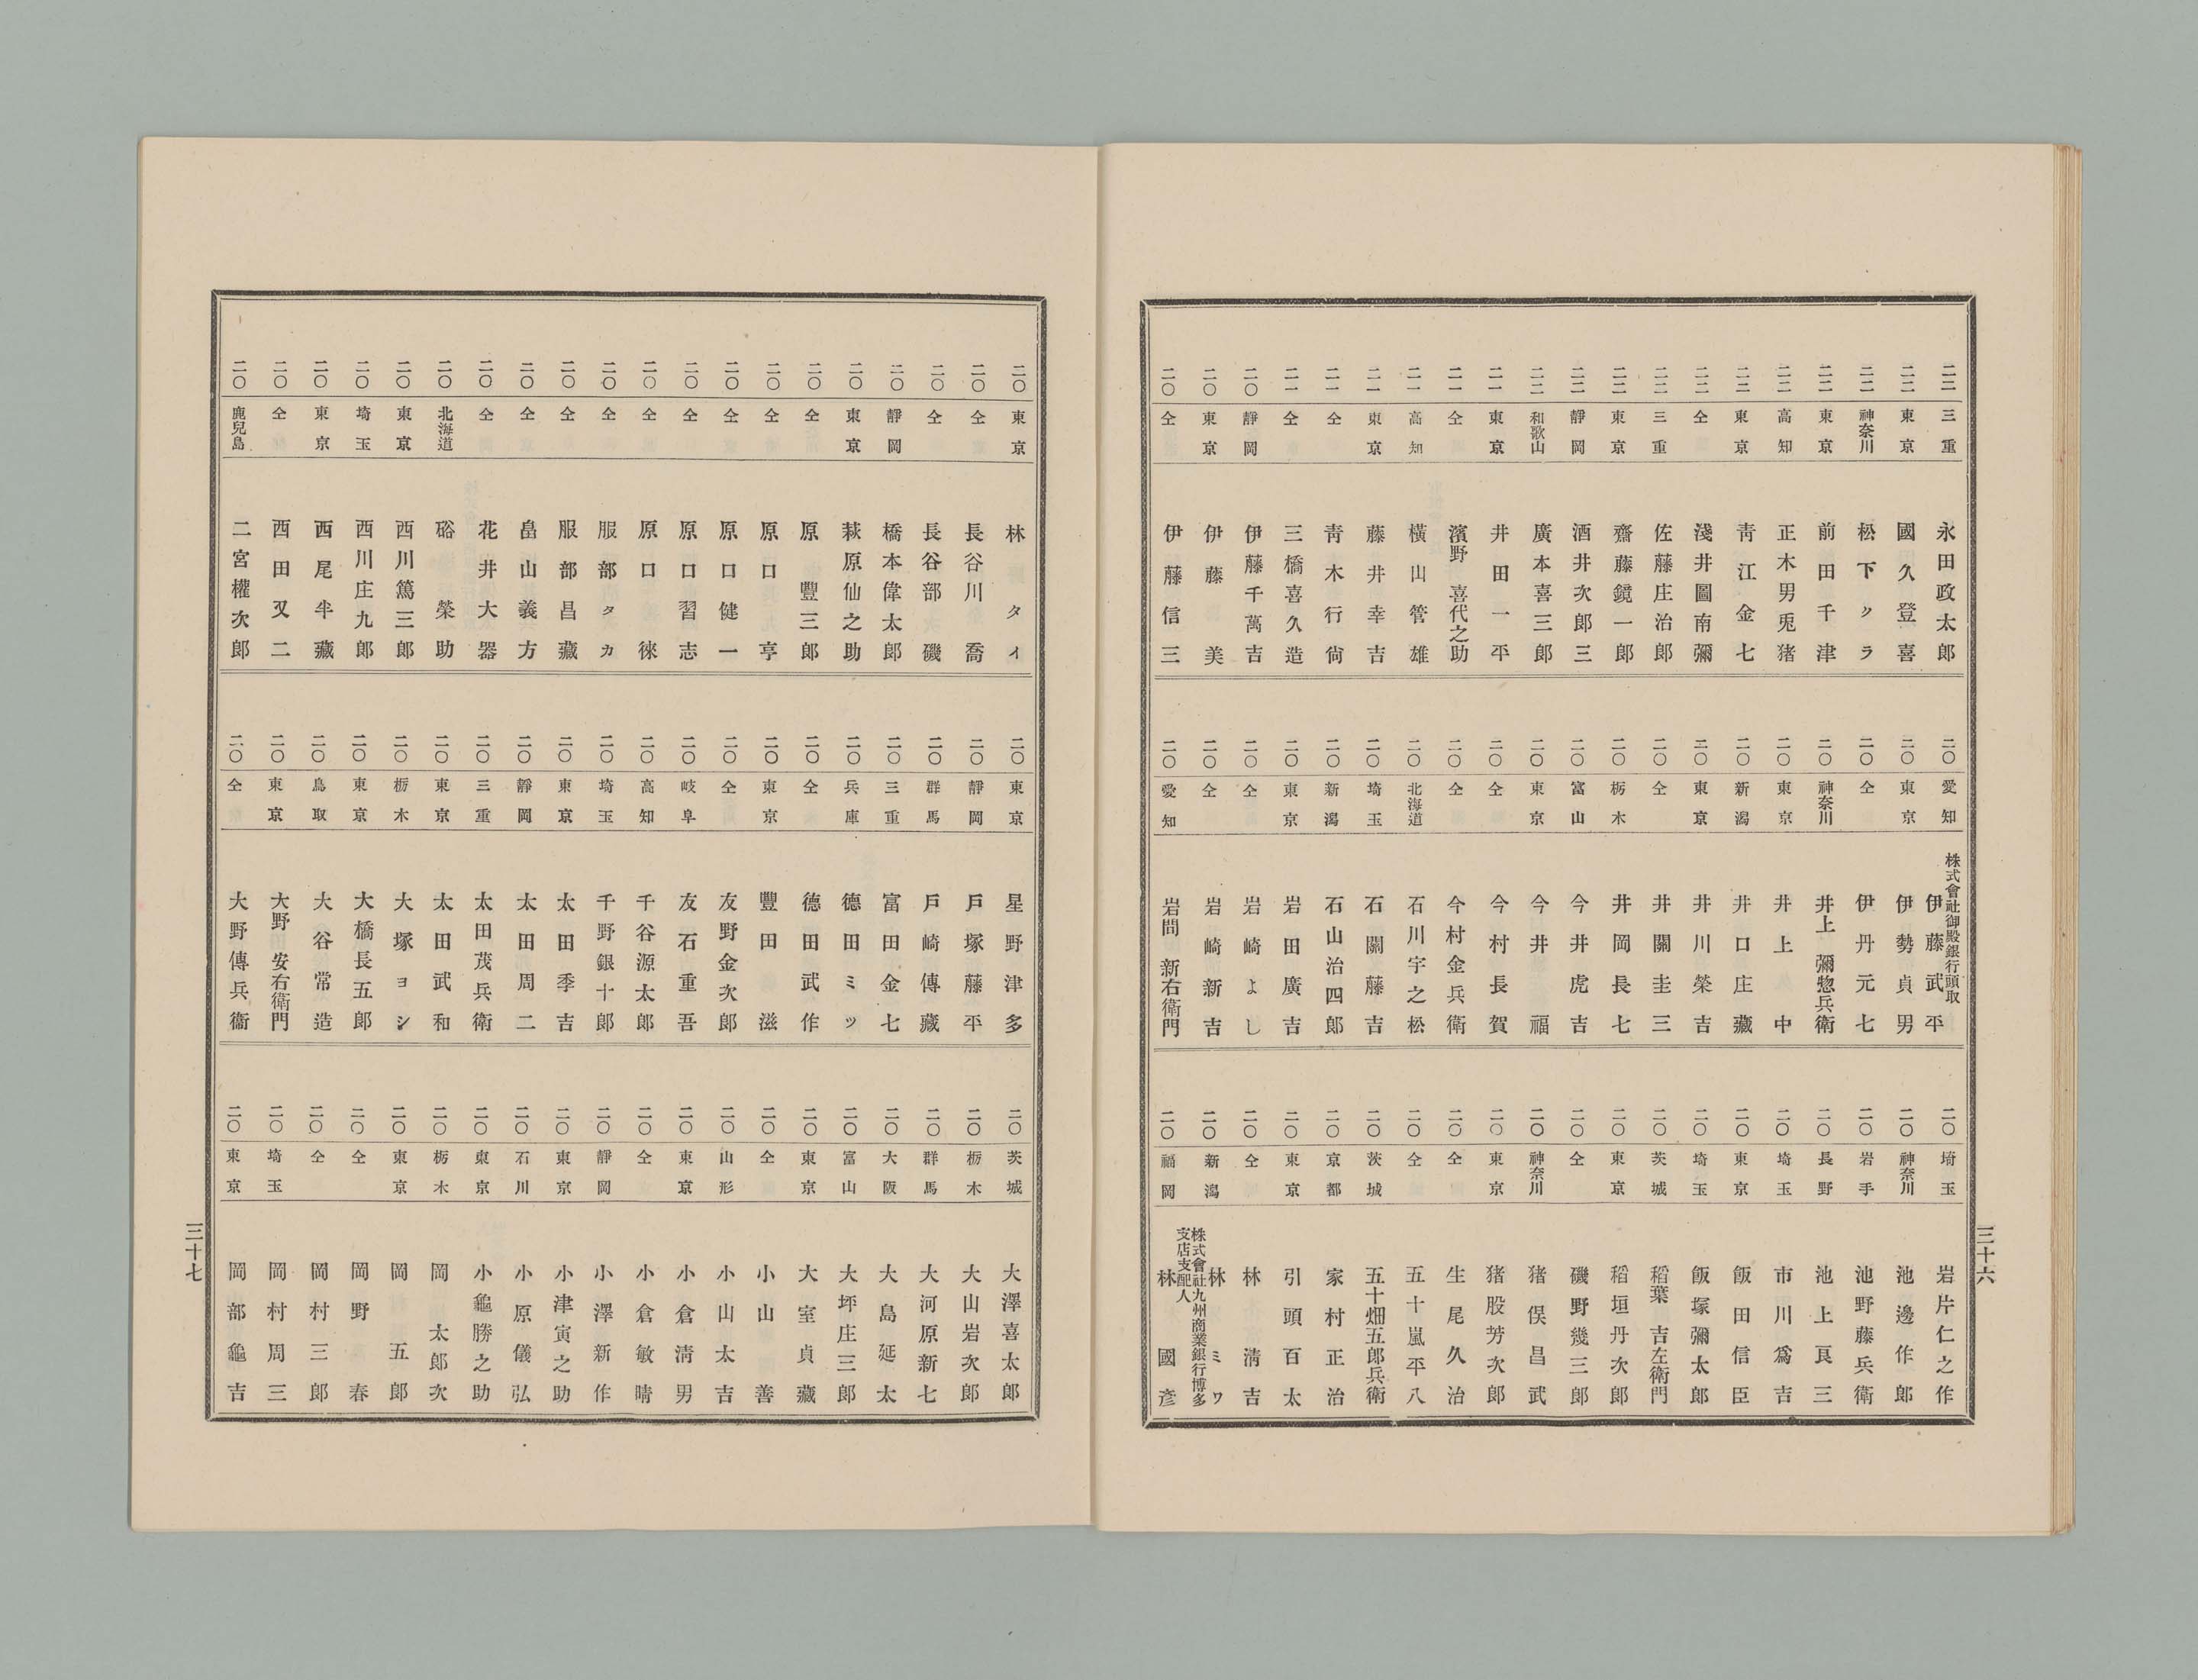 二二 三重 永田政太郎
二二 東京 國久登喜
二二 神奈川 松下クラ
二二 東京 前田千津
二二 高知 正木男兎猪
二二 東京 靑江金七
二二 仝 淺井圖南彌
二二 三重 佐藤庄治郎
二二 東京 齋藤鏡一郎
二二 靜岡 酒井次郎三
二二 和歌山 廣本喜三郎
二一 東京 井田一平
二一 仝 濱野喜代之助
二一 高知 橫山管雄
二一 東京 藤井幸吉
二一 仝 靑木行尙
二一 仝 三橋喜久造
二〇 靜岡 伊藤千萬吉
二〇 東京 伊藤美
二〇 仝 伊藤信三
二〇 愛知 株式會社御殿銀行頭取 伊藤武平
二〇 東京 伊勢貞男
二〇 仝 伊丹元七
二〇 神奈川 井上彌惣兵衛
二〇 東京 井上中
二〇 新潟 井口庄藏
二〇 東京 井川榮吉
二〇 仝 井關圭三
二〇 栃木 井岡長七
二〇 富山 今井虎吉
二〇 東京 今井福
二〇 仝 今村長賀
二〇 仝 今村金兵衛
二〇 北海道 石川宇之松
二〇 埼玉 石關藤吉
二〇 新潟 石山治四郎
二〇 東京 岩田廣吉
二〇 仝 岩崎よし
二〇 仝 岩崎新吉
二〇 愛知 岩間新右衛門
二〇 埼玉 岩片仁之作
二〇 神奈川 池邊作郎
二〇 岩手 池野藤兵衛
二〇 長野 池上良三
二〇 埼玉 市川爲吉
二〇 東京 飯田信臣
二〇 埼玉 飯塚彌太郎
二〇 茨城 稻葉吉左衛門
二〇 東京 稻垣丹次郎
二〇 仝 磯野幾三郎
二〇 神奈川 猪俣昌武
二〇 東京 猪股芳次郎
二〇 仝 生尾久治
二〇 仝 五十嵐平八
二〇 茨城 五十畑五郎兵衛
二〇 京都 家村正治
二〇 東京 引頭百太
二〇 仝 林淸吉
二〇 新潟 林ミワ
二〇 福岡 株式會社九州商業銀行博多支店支配人 林國彦
三十六
二〇 東京 林タイ
二〇 仝 長谷川喬
二〇 仝 長谷部磯
二〇 靜岡 橋本偉太郎
二〇 東京 萩原仙之助
二〇 仝 原豐三郎
二〇 仝 原口亨
二〇 仝 原口健一
二〇 仝 原口習志
二〇 仝 原口徠
二〇 仝 服部タカ
二〇 仝 服部昌藏
二〇 仝 畠山義方
二〇 仝 花井大器
二〇 北海道 硲榮助
二〇 東京 西川篤三郎
二〇 埼玉 西川庄九郎
二〇 東京 西尾半藏
二〇 仝 西田又二
二〇 鹿兒島 二宮權次郎
二〇 東京 星野津多
二〇 靜岡 戶塚藤平
二〇 群馬 戶崎傳藏
二〇 三重 富田金七
二〇 兵庫 德田ミツ
二〇 仝 德田武作
二〇 東京 豐田滋
二〇 仝 友野金次郎
二〇 岐阜 友石重吾
二〇 高知 千谷源太郎
二〇 埼玉 千野銀十郎
二〇 東京 太田季吉
二〇 靜岡 太田周二
二〇 三重 太田茂兵衛
二〇 東京 太田武和
二〇 栃木 大塚ヨシ
二〇 東京 大橋長五郎
二〇 鳥取 大谷常造
二〇 東京 大野安右衛門
二〇 仝 大野傳兵衞
二〇 茨城 大澤喜太郎
二〇 栃木 大山岩次郎
二〇 群馬 大河原新七
二〇 大阪 大島延太
二〇 富山 大坪庄三郎
二〇 東京 大室貞藏
二〇 仝 小山善
二〇 山形 小山太吉
二〇 東京 小倉淸男
二〇 仝 小倉敏晴
二〇 靜岡 小澤新作
二〇 東京 小津寅之助
二〇 石川 小原儀弘
二〇 東京 小龜勝之助
二〇 栃木 岡太郎次
二〇 東京 岡五郎
二〇 仝 岡野春
二〇 仝 岡村三郎
二〇 埼玉 岡村周三
二〇 東京 岡部龜吉
三十七